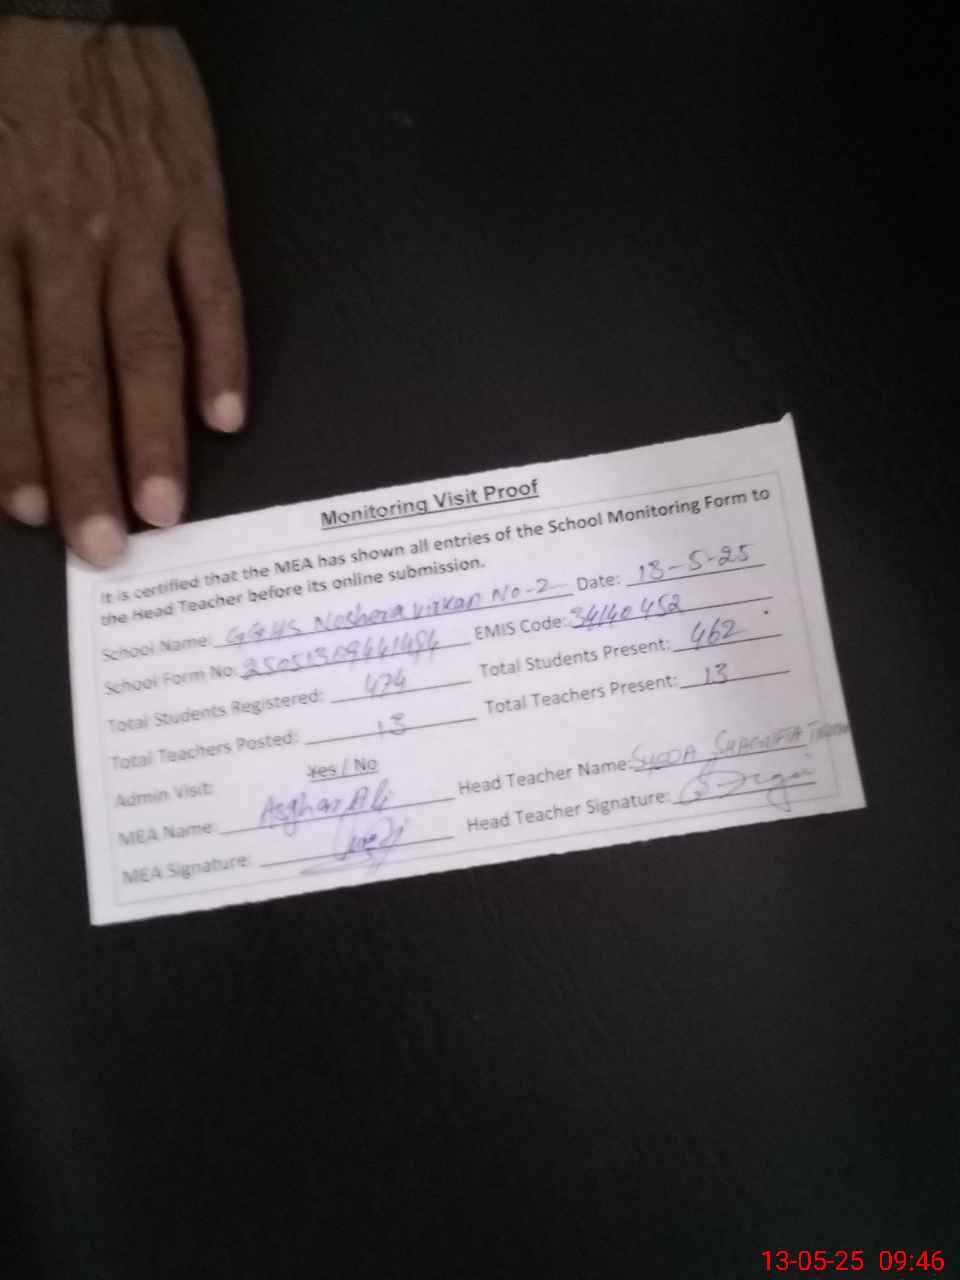 Monitoring Visit Proof
It is certified that the MEA has shown all entries of the School Monitoring Form to
the Head Teacher before its online submission.
School Name: GGHS Noshera Virkan No-2 Date: 13-5-25
School Form No: EMIS Code: 34140452
Total Students Registered: 474 Total Students Present: 462
Total Teachers Posted: 13 Total Teachers Present: 13
Admin Visit: Yes / No
MEA Name: Asghar Ali Head Teacher Name: SYEDA SHAGUFTA
MEA Signature: Head Teacher Signature:
13-05-25 09:46